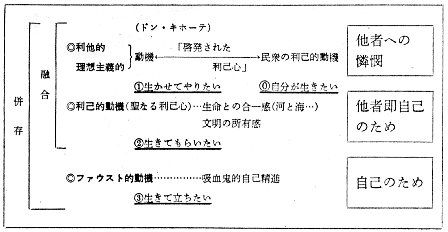 (ドン・キホーテ)
◎利他的 理想主義的 動機 「啓発された利己心」 民衆の利己的動機
①生かせてやりたい ⓪自分が生きたい
他者への憐憫
◎利己的動機(聖なる利己心)…生命との合一感(河と海…)
文明の所有感
②生きてもらいたい
他者即自己のため
◎ファウスト的動機……………吸血鬼的自己精進
③生きて立ちたい
自己のため
融合
併存